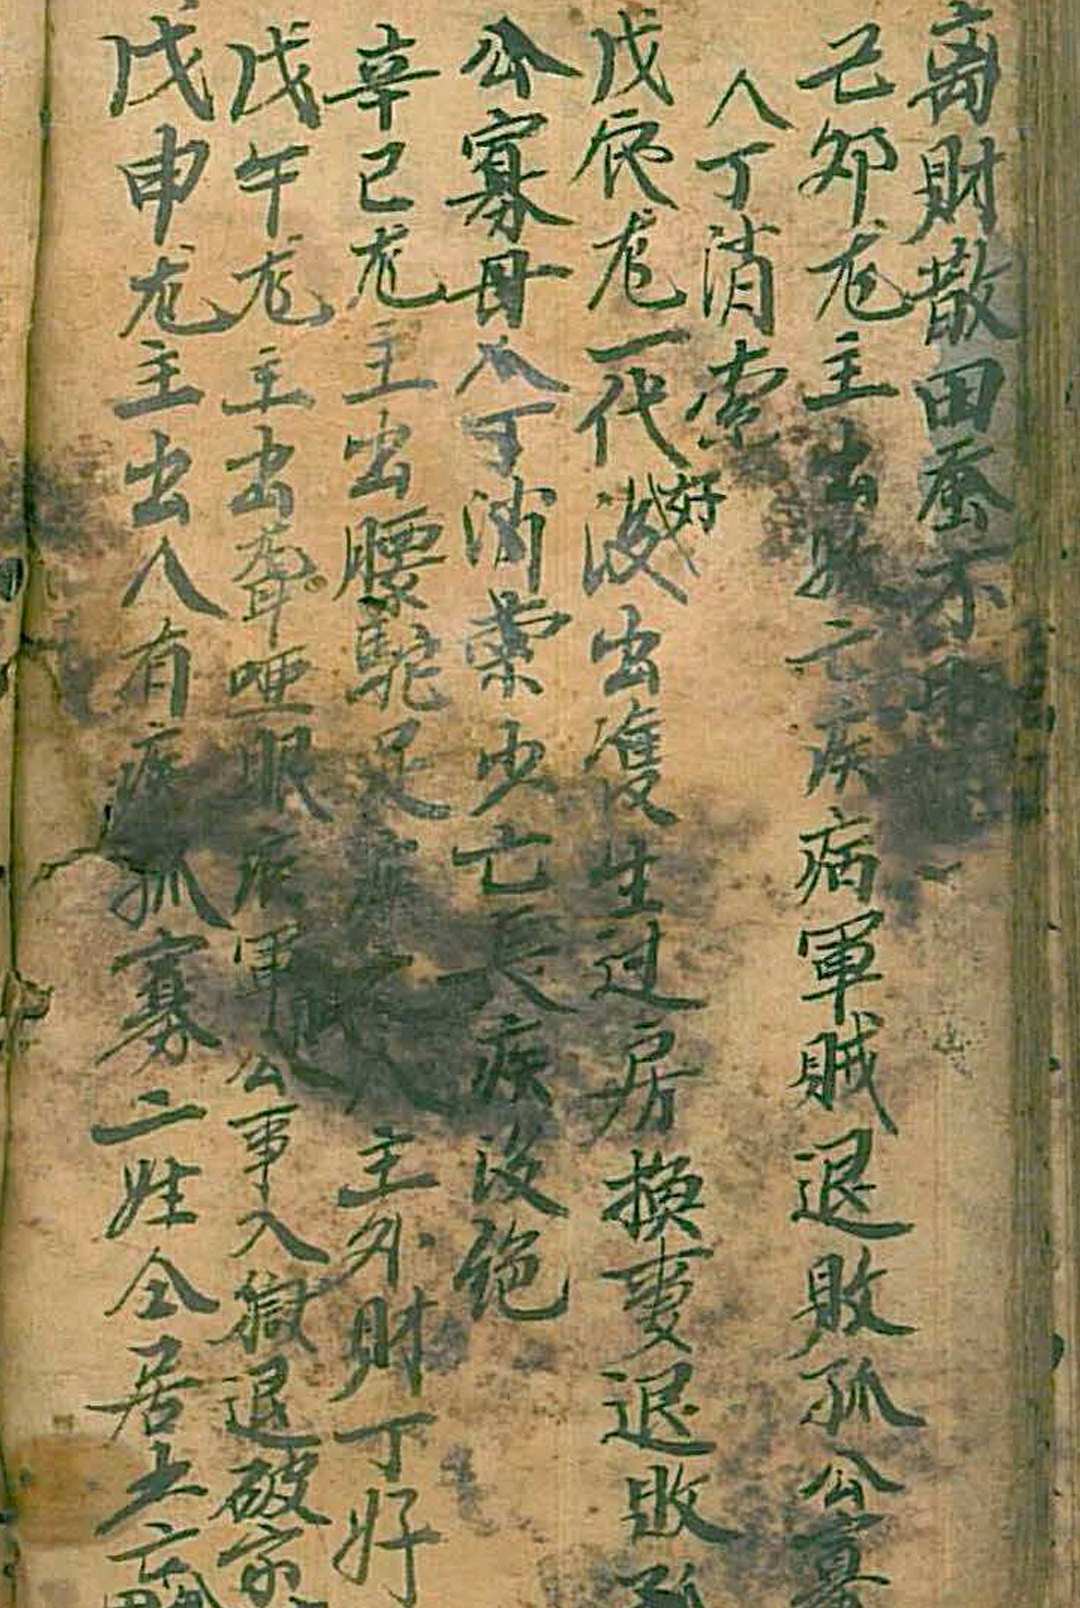 离財散田蚕不
己卯龙主出少亡疾病軍賊退敗孤公寡
人丁消索
戊辰龙一代好
出雙生过房換妻退敗孤
公寡母人丁消索少亡長疾沒絕
辛巳龙主出腰駝足疾 主外財丁好
戊午龙主出聾哑眼疾軍 公事入獄退破家
戊申龙主出人有疾孤寡二姓仝居